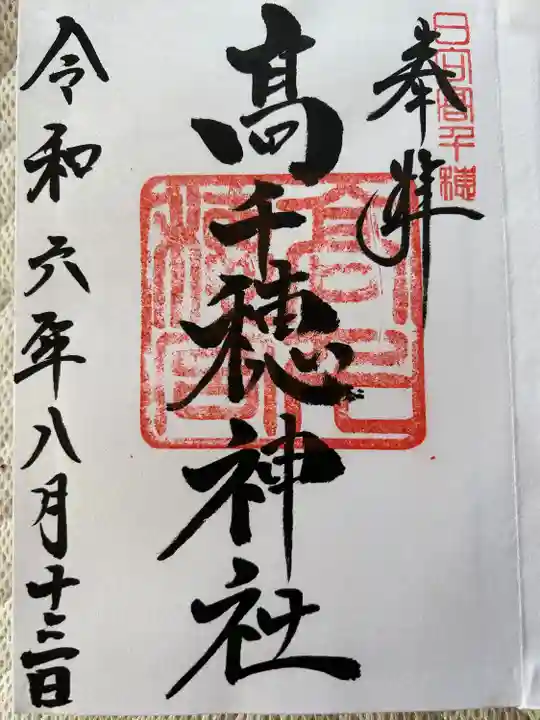 日向高千穂
奉拝
高千穂神社
令和六年八月十三日